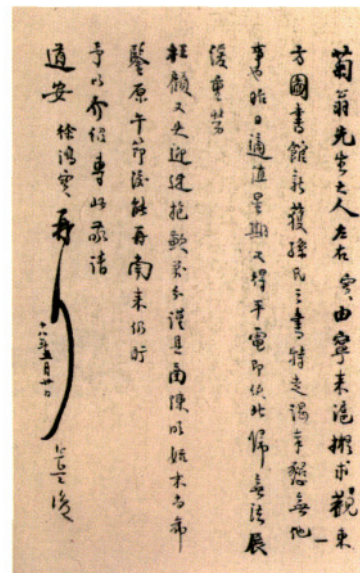 菊翁先生大人左右寶由寧来滬擬求觀東
方圖書館新獲孫氏之書特走謁奉懇無他
事也昨日適值星期又得平電即候北歸無法展
緩重勞
枉顧又失迎迓抱歉萬分謹具函陳明始末尚希
鑒原午節後能再南来仍盼
予以介紹專此敬請
道安 徐鴻寶再
十八年五月廿日